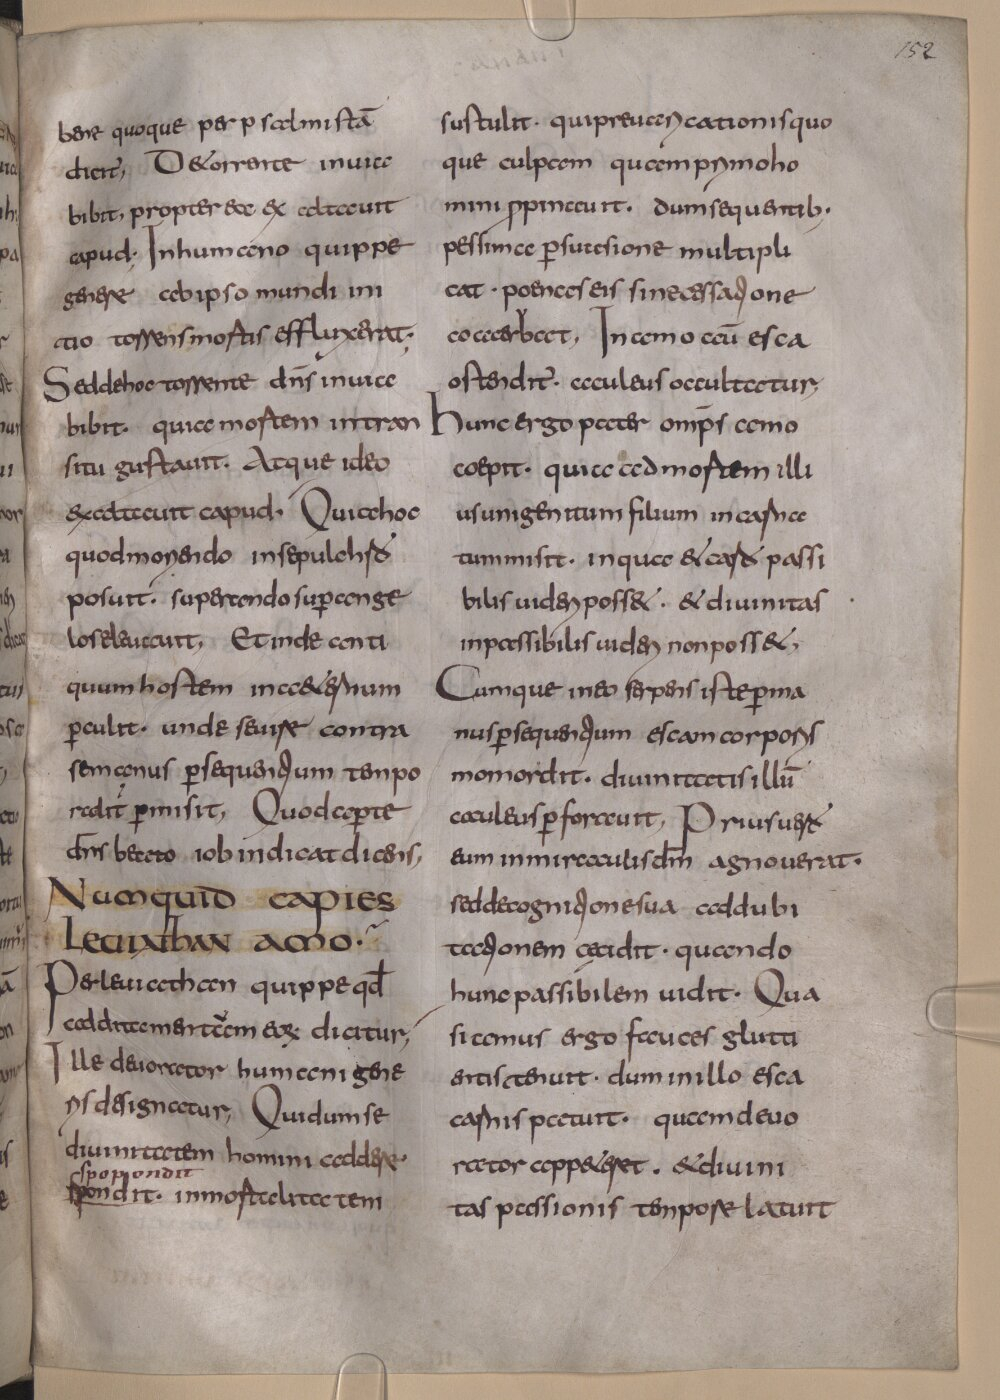 152
bene quoque per psalmistā
dicit, De torrente in uia
bibit, propter ea exaltauit
capud. In humano quippe
genere ab ipso mundi ini
tio torrens mortis effluxerat.
Sed de hoc torrente dn̄s in uia
bibit. quia mortem in tran
situ gustauit. Atque ideo
exaltauit capud. Quia hoc
quod moriendo in sepulchro
posuit. superando sup ange
los eleuauit, Et inde anti
quum hostem in aeternum
perculit. unde seuire contra
se manus persequentium tempo
raliter permisit, Quod aperte
dn̄s beato iob indicat dicens,
Numquid capies
Leuiathan amo.
Per leuiathan quippe qd̄
additamentum eorum dicitur,
Ille deuorator humani gene
ris designatur, Qui dum se
diuinitatem homini addere.
spopondit
spondit. inmortalitatem
sustulit. qui preuaricationis quo
que culpam quam primo ho
mini propinauit. dum sequentib;
pessima persuasione multipli
cat. poenas eis sine cessatione
coaceruat, In amo aut̄ esca
ostenditur. aculeus occultatur,
hunc ergo pater omp̄s amo
coepit. quia ad mortem illi
us unigenitum filium incarna
tum misit. in qua et caro passi
bilis uideri posset. et diuinitas
inpassibilis uideri non posset,
Cumque in eo serpens iste per ma
nus persequentium escam corporis
momordit. diuinitatis illū
aculeus perforauit, Prius uero
eum in miraculis dm̄ agnouerat.
sed de cognitione sua ad dubi
tationem cecidit. quando
hunc passibilem uidit. Qua
si amus ergo fauces glutti
entis tenuit. dum in illo esca
carnis patuit. quam deuo
rator appeteret. et diuini
tas passionis tempore latuit